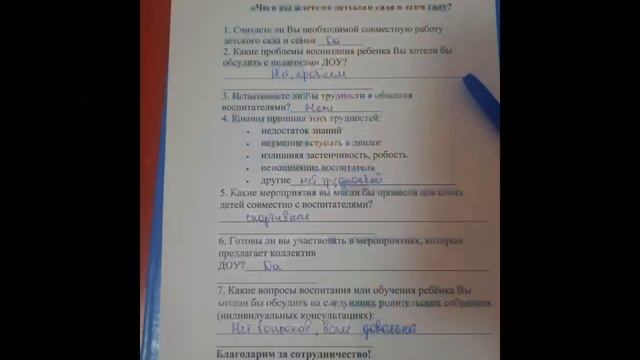 «Чего вы ждете от детского сада в этом году?
1. Считаете ли Вы необходимой совместную работу
детского сада и семьи Да
2. Какие проблемы воспитания ребенка Вы хотели бы
обсудить с педагогами ДОУ?
Нет проблем
3. Испытываете ли Вы трудности в общении
воспитателями? Нет
4. Каковы причины этих трудностей:
• недостаток знаний
• неумение вступать в диалог
• излишняя застенчивость, робость
• непонимание воспитателя
• другие нет трудностей
5. Какие мероприятия вы могли бы провести для своих
детей совместно с воспитателями?
спортивное
6. Готовы ли вы участвовать в мероприятиях, которые
предлагает коллектив
ДОУ? Да
7. Какие вопросы воспитания или обучения ребёнка Вы
хотели бы обсудить на следующих родительских собраниях
(индивидуальных консультациях):
Нет вопросов, всем довольны
Благодарим за сотрудничество!